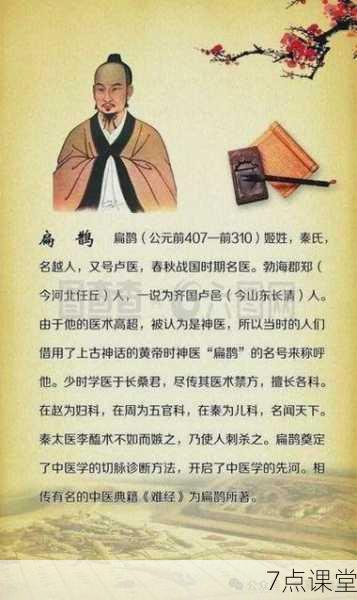 扁 鹊 扁鹊（公元前407—前310）姬姓，秦氏，
名越人，又号卢医，春秋战国时期名医。勃海郡郑（
今河北任丘）人，一说为齐国卢邑（今山东长清）人。
由于他的医术高超，被认为是神医，所以当时的人们
借用了上古神话的黄帝时神医“扁鹊”的名号来称呼
他。少时学医于长桑君，尽传其医术禁方，擅长各科。
在赵为妇科，在周为五官科，在秦为儿科，名闻天下。
秦太医李醯术不如而嫉之，乃使人刺杀之。扁鹊奠定
了中医学的切脉诊断方法，开启了中医学的先河。相
传有名的中医典籍《难经》为扁鹊所著。
7点课堂